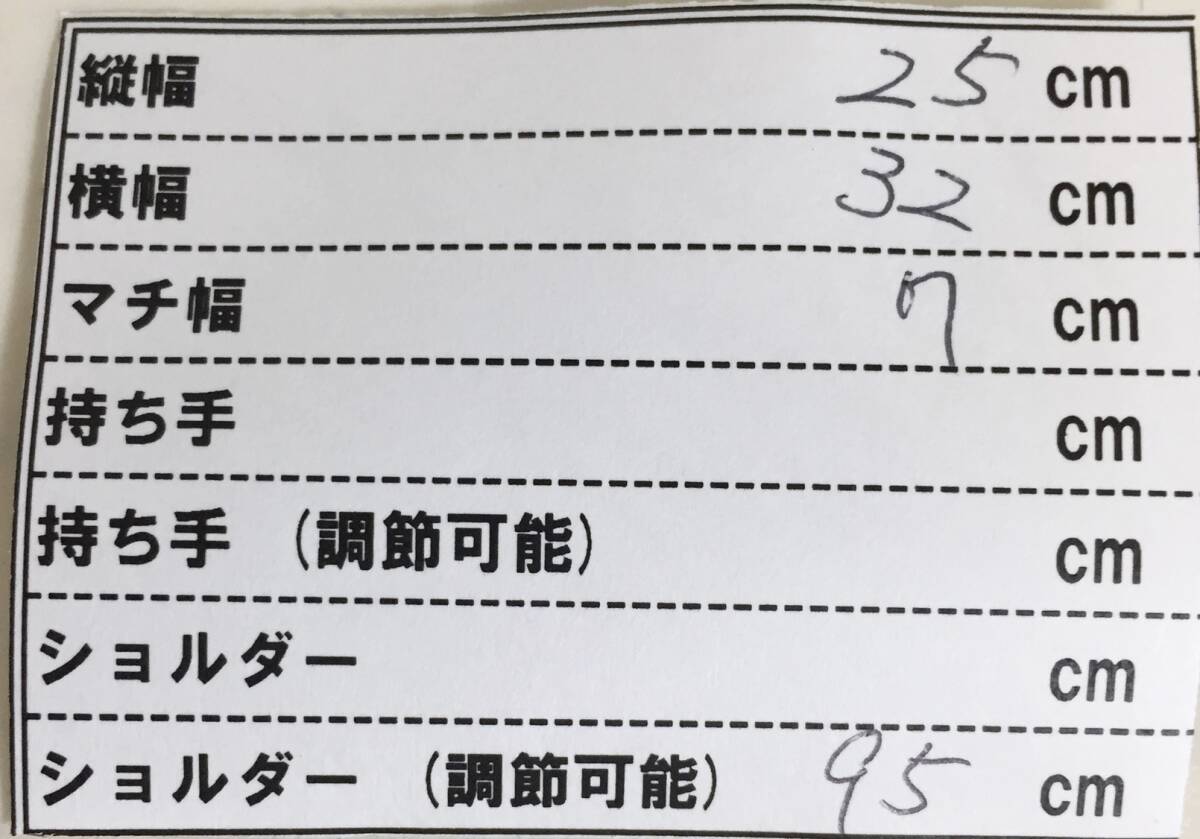 縦幅 25 cm
横幅 32 cm
マチ幅 7 cm
持ち手 cm
持ち手 (調節可能) cm
ショルダー cm
ショルダー (調節可能) 95 cm